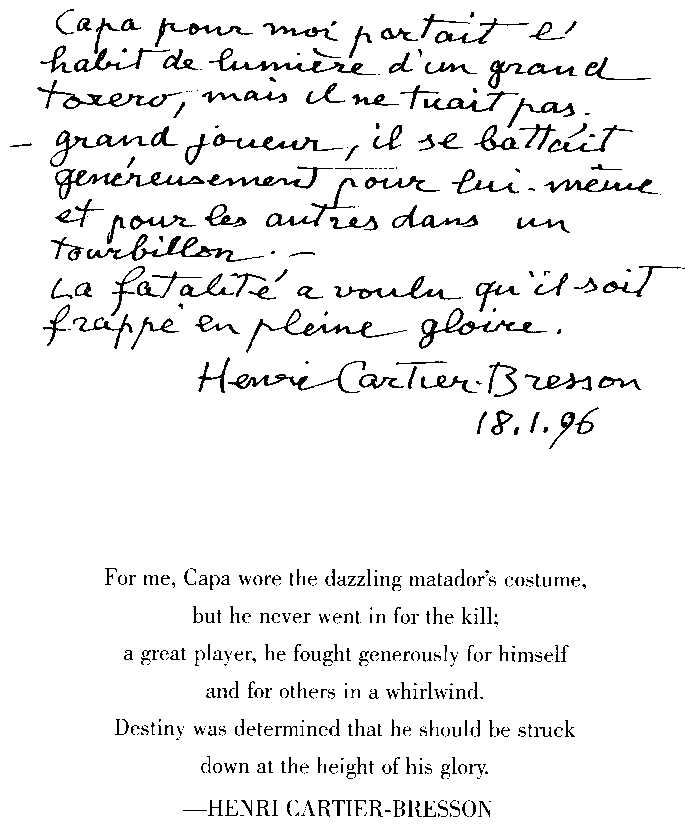 Capa pour moi portait l'
habit de lumière d'un grand
torero, mais il ne tuait pas.
– grand joueur, il se battait
genéreusement pour lui-même
et pour les autres dans un
tourbillon. –
La fatalité a voulu qu'il soit
frappé en pleine gloire.
Henri Cartier-Bresson
18.1.96
For me, Capa wore the dazzling matador's costume,
but he never went in for the kill;
a great player, he fought generously for himself
and for others in a whirlwind.
Destiny was determined that he should be struck
down at the height of his glory.
—HENRI CARTIER-BRESSON